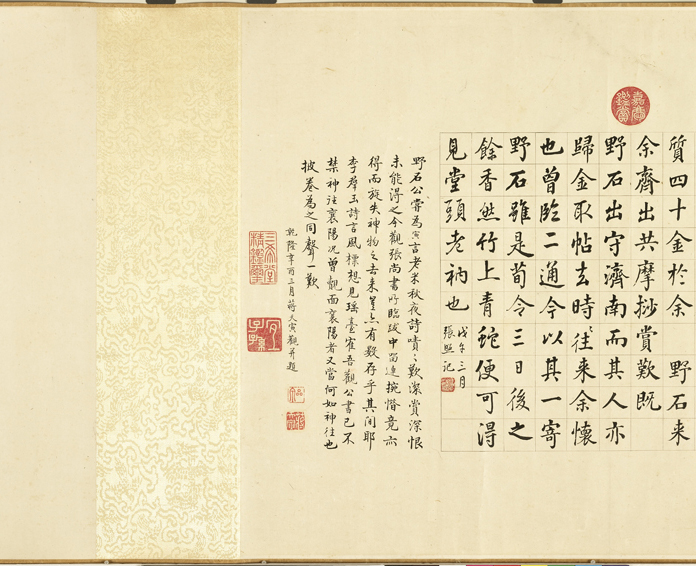 嘉慶鑑賞
質四十金於余 野石来
余齊出共摩挱賞歎既
野石出守濟南而其人亦
歸金取帖去時ゝ往来余懷
也曾臨二通今以其一寄
野石雖是荀令三日後之
餘香然竹上青蛇便可得
見堂頭老衲也
戊午三月
張照記
野石公嘗為寅言老米秋夜詩嘖ゝ歎潔賞深恨
未能得之今觀張尚書所臨跋中留連捥惜竟亦
得而旋失神物之去来豈亦有数存乎其间耶
李羣玉詩言風標想見瑤臺寉吾觀公書已不
禁神往襄陽况曾覿面襄陽者又當何如神往也
披卷為之同聲一歎
乾隆辛酉三月蔣大寅觀并題
三希堂精鑑璽
宜子孫